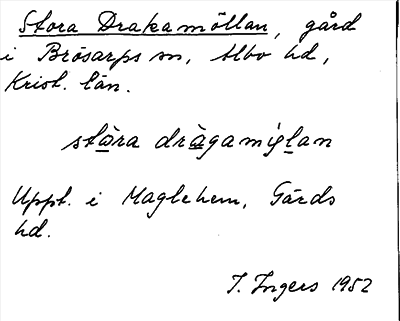 Stora Drakamöllan, gård
i Brösarps sn, Albo hd,
Krist. län.
stòra dràgamiglan
Uppt. i Maglehem, Gärds
hd.
I. Ingers 1952